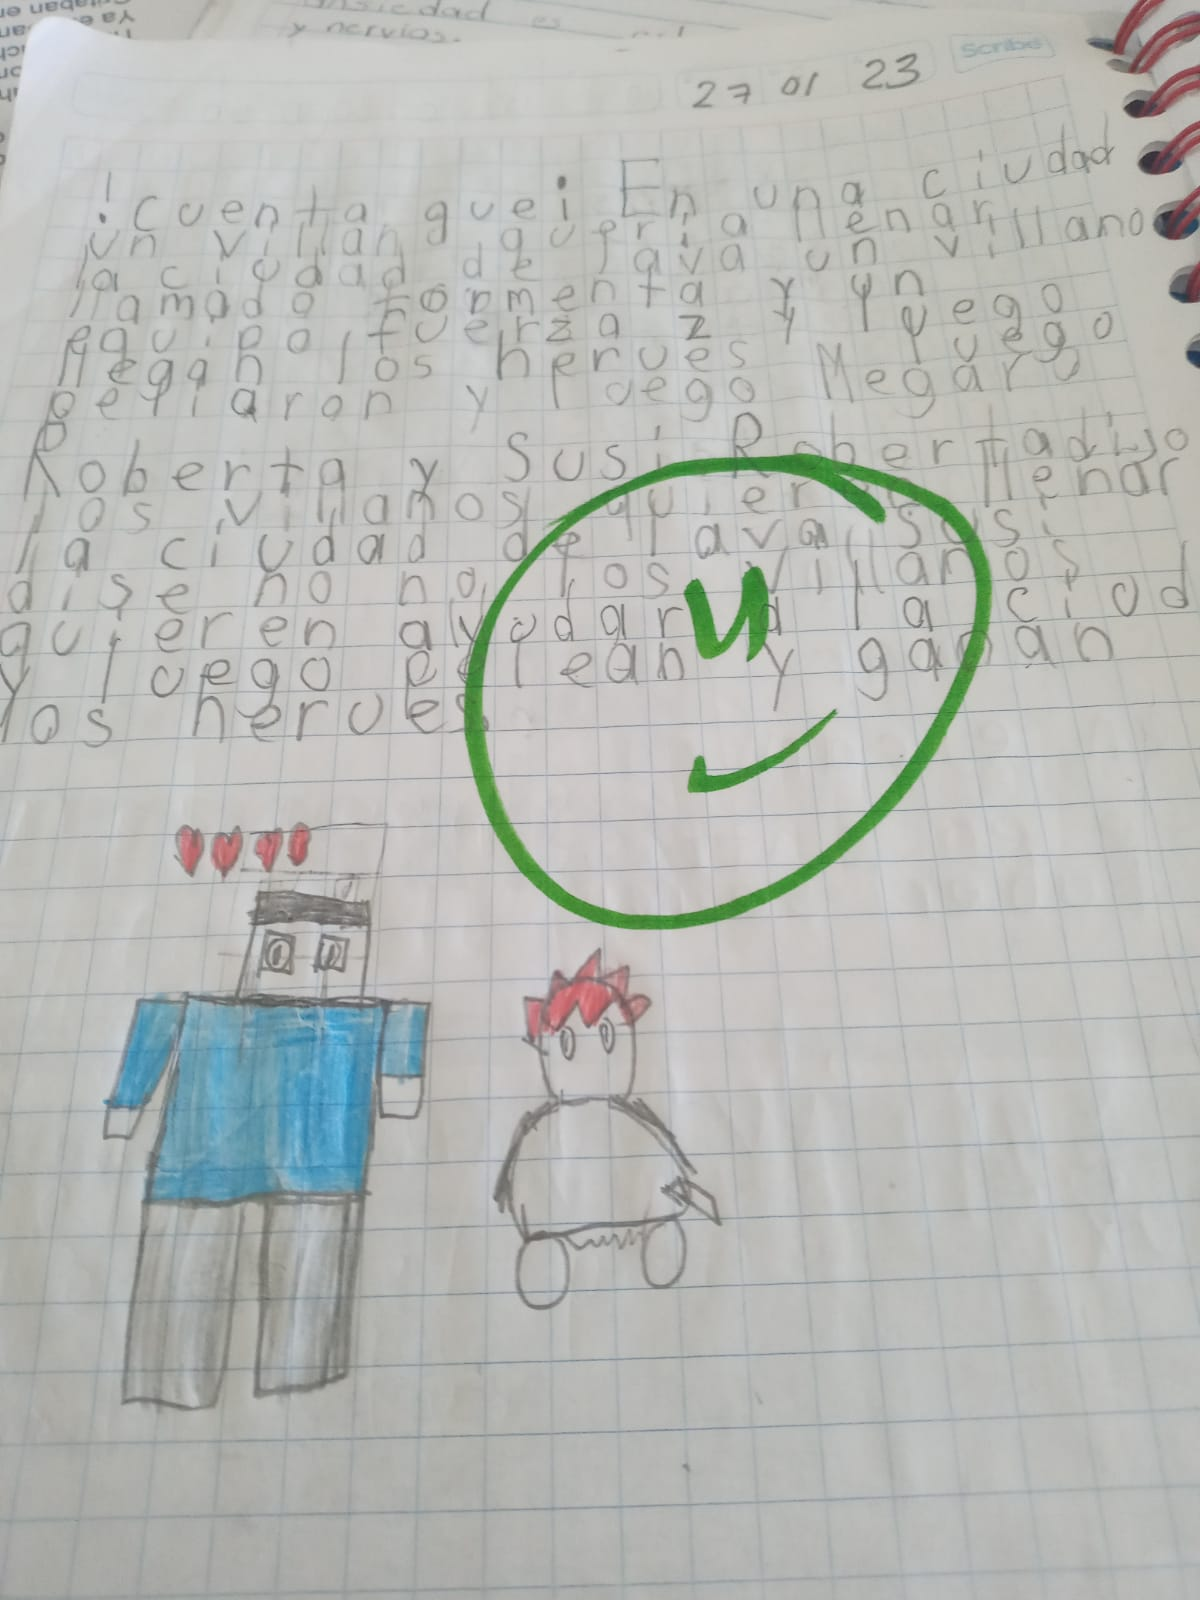 27 01 23
Scribe
¡Cuenta que¡ En una ciudad
un villano queria llenar
la ciudad de lava un villano
llamado tormenta y un
equipo fuerza 2 y luego
llegan los herues luego
peliaron y luego llegaro
Roberta y Susi Roberta dijo
los villanos quieren llenar
la ciudad de lava Susi
dise no no los villanos
quieren ayudar a la ciud
y luego pelean y ganan
los herues
y nervios.